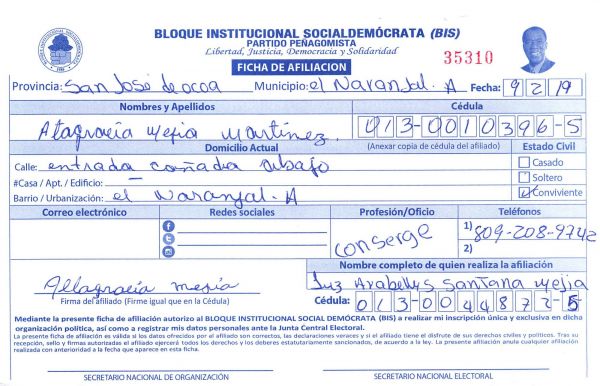 BLOQUE INSTITUCIONAL SOCIALDEMÓCRATA (BIS)
PARTIDO PEÑAGOMISTA
Libertad, Justicia, Democracia y Solidaridad
35310
FICHA DE AFILIACION
Provincia: San José de ocoa Municipio: el Naranjal. A Fecha: 9/2/19
Nombres y Apellidos Cédula
Altagracia Mejia Martinez. 013-0010396-5
Domicilio Actual (Anexar copia de cédula del afiliado) Estado Civil
Calle: entrada cañada abajo Casado
#Casa / Apt. / Edificio: — Soltero
Barrio / Urbanización: el Naranjal. A Conviviente
Correo electrónico Redes sociales Profesión/Oficio Teléfonos
conserge 1) 809-208-9742
2)
Nombre completo de quien realiza la afiliación
Altagracia mejia Luz Arabellys Santana Mejia
Firma del afiliado (Firme igual que en la Cédula) Cédula: 013-0044872-5
Mediante la presente ficha de afiliación autorizo al BLOQUE INSTITUCIONAL SOCIAL DEMÓCRATA (BIS) a realizar mi inscripción única y exclusiva en dicha
organización política, así como a registrar mis datos personales ante la Junta Central Electoral.
La presente ficha de afiliación es válida si los datos ofrecidos por el afiliado son correctos, las declaraciones veraces y si el afiliado tiene el disfrute de sus derechos civiles y políticos. Tras su
recepción, sello y firmas autorizadas el afiliado ejercerá todos los derechos y los deberes estatutariamente sancionados, de acuerdo a la ley. La presente afiliación anula cualquier afiliación
realizada con anterioridad a la fecha que aparece en esta ficha.
SECRETARIO NACIONAL DE ORGANIZACIÓN SECRETARIO NACIONAL ELECTORAL